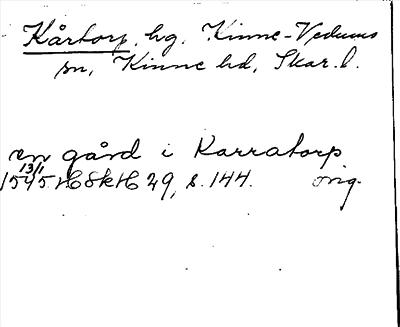 Kårtorp, hg. Kinne-Vedums
sn, Kinne hd, Skar. l.
en gård i Karratorp
1545 13/1 HSH 29, s. 144. orig.